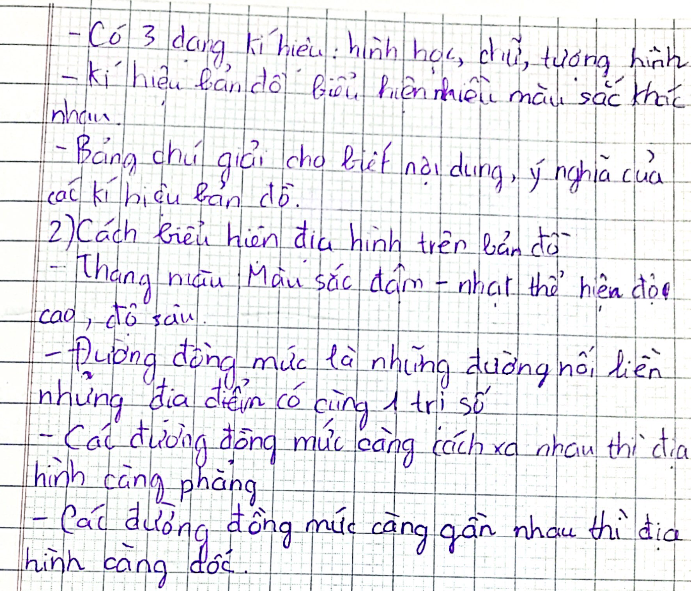 - Có 3 dạng kí hiệu: hình học, chữ, tượng hình
- kí hiệu bản đồ biểu hiện nhiều màu sắc khác
nhau.
- Bảng chú giải cho biết nội dung, ý nghĩa của
các kí hiệu bản đồ.
2) Cách biểu hiện địa hình trên bản đồ
- Thang màu Màu sắc đậm - nhạt thể hiện độ
cao, độ sâu.
- Đường đồng mức là những đường nối liền
những địa điểm có cùng 1 trị số
- Các đường đồng mức càng cách xa nhau thì địa
hình càng phẳng
- Các đường đồng mức càng gần nhau thì địa
hình càng dốc.